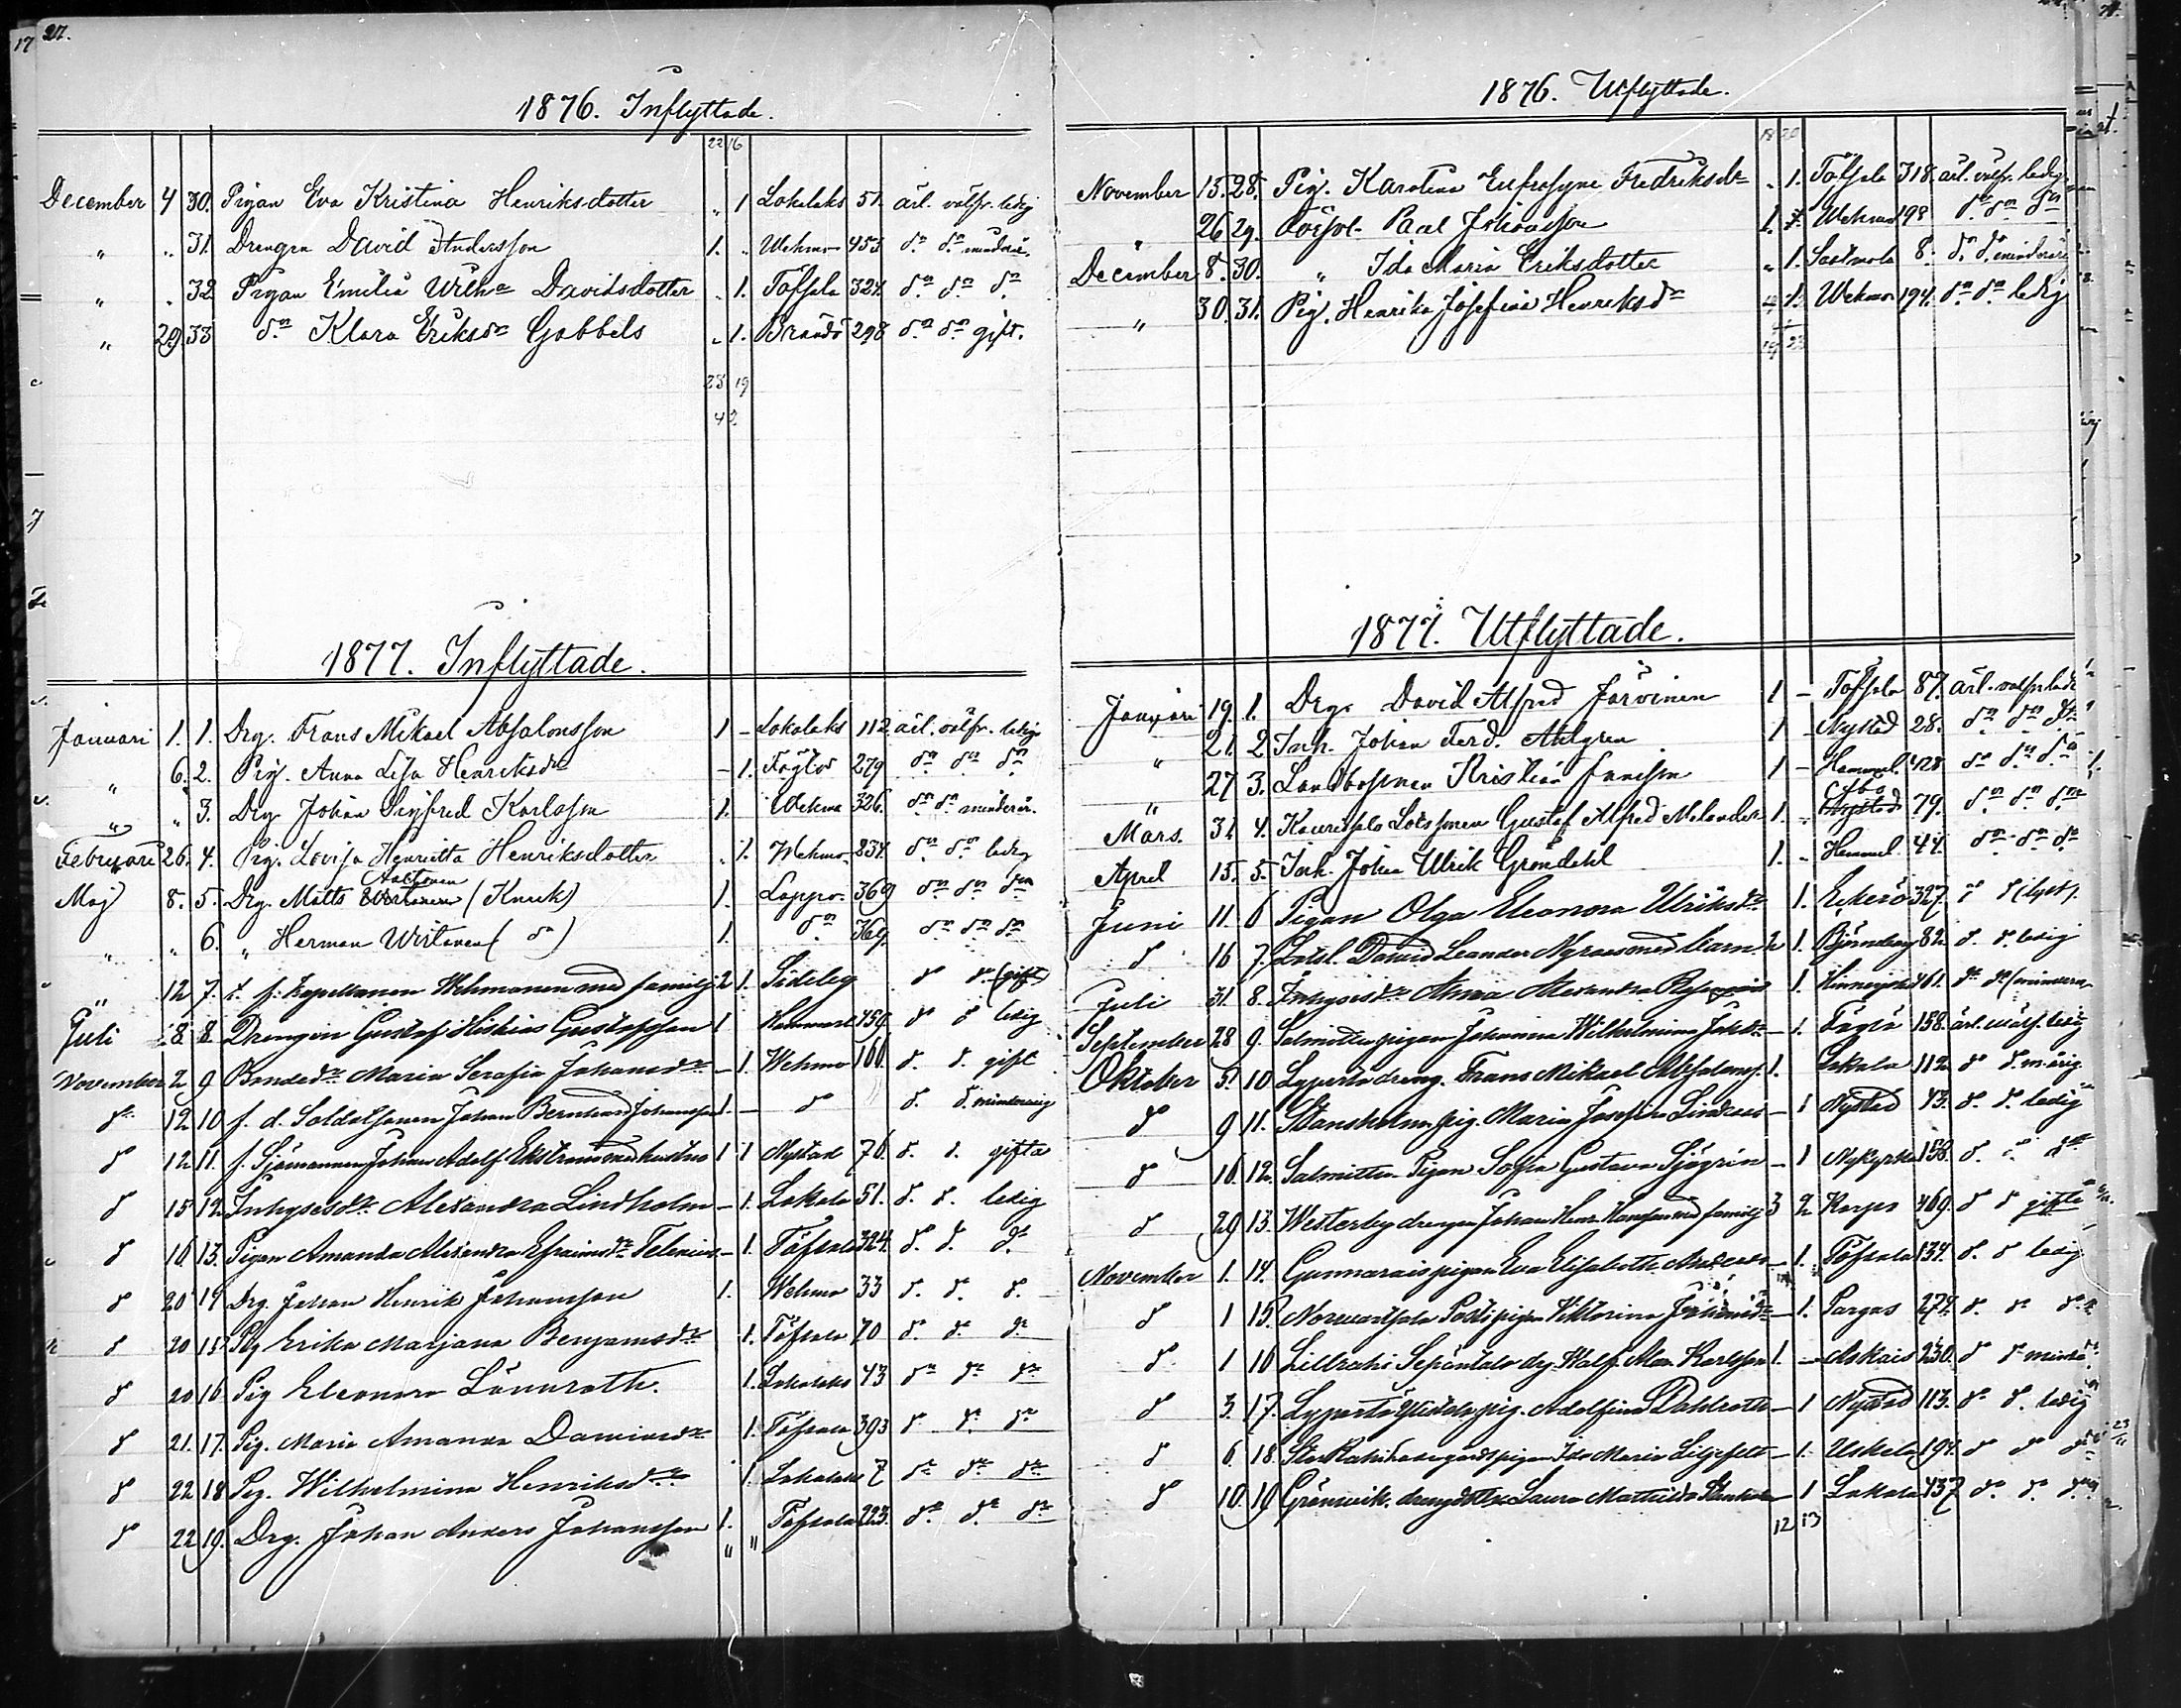 27.
1876. Inflyttade.
22 16
December 4 30. Pigan Eva Kristina Henriksdotter „ 1 Lokalaks 51. ärl. välfr. ledig
„ „ 31. Drengen David Andersson 1. „ Wehmo 453 dn dn minderår.
„ „ 32 Pigan Emilia Wilhna Davidsdotter „ 1. Töfsala 324. dn dn dn
„ 29 33 dn Klara Eriksdr Gabbels „ 1. Brändö 298 dn dn gift.
23 19
42
1877. Inflyttade.
Januari 1. 1. Drg. Frans Mikael Absalonsson 1 – Lokalaks 112 ärl. välfr. ledig
„ 6. 2. Pig. Anna Lisa Henriksdr – 1. Föglö 279 dn dn dn
„ „ 3. Drg. Johan Sigfred Karlsson 1. Wehmo 326. dn dn minderår.
Februari 26. 4. Pig. Lovisa Henrietta Henriksdotter „ 1. Wehmo 234. dn dn ledig
Maj 8. 5. Drg. Matts Aaltonen (Knuck) 1. Lappo 369 dn dn dn
„ „ 6. „ Herman Wirtanen ( dn ) 1. dn 369. dn dn dn
„ 12 7. t. f. Kapellanen Wehmanen med familj 2 1. Sideby d dn (gift)
Juli 8. 8. Drengen Gustaf Hiskias Gustafsson 1 Hammarl. 459 d d ledig
November 2 9 Bondedr Maria Serafia Johansdr – 1. Wehmo 160. d. d. gift
dn 12 10 f. d. Soldatsonen Johan Bernhard Johansson 1. – d d. d. minderårig
d 12 11. f. Sjömannen Johan Adolf Ekström med hustru 1 1 Nystad 76. d. d. gifta
d 15 12. Inhysesdr Alexandra Lindholm – 1. Lokala 51. d. d. ledig
d 16 13. Pigan Amanda Alexandra Efraimsdr Telenius – 1. Töfsala 324. d. d. dn
d 20 14 Drg. Johan Henrik Johansson 1. Wehmo 33 d. d. d.
d 20 15. Pig Erika Marjana Benjamsdr 1. Töfsala 70 d. d. dn
d 20 16 Pig Eleonora Lönnroth. 1. Lokalaks 43 dn dn dn
d 21. 17. Pig. Maria Amanda Daviasdr 1. Töfsala 393 d. d. dn
d 22 18 Pig. Wilhelmina Henriksdr 1. Lokalaks 7 dn dn dn
d 22 19. Drg. Johan Anders Johansson 1. „ Töfsala 223. dn dn dn
1876. Utflyttade.
18 20
November 15. 28. Pig. Karolina Eufrosyne Fredriksdr „ 1. Töfsala 318. ärl. välfr. ledig.
„ 26 29. Paul Johansson 1. Wehmo 198 dn dn dn
December 8. 30. „ Ida Maria Eriksdotter „ 1. Sastmola 8. d. d. minderår
„ 30. 31. Pig. Henrika Josefina Henriksdr „ 1. Wehmo 194. dn dn ledig
19 23
1877. Utflyttade.
Januari 19. 1. Drg. David Alfred Järvinen 1 – Töfsala 87. ärl. välfr. ledig
„ 21. 2 Inh. Johan Ferd. Ahlgren 1 – Nystad 28. dn dn dn
„ 27 3. Landbosonen Kristian Jansson 1 – Hammarl. 428 dn dn dn
Mars. 31. 4. Lotssonen Gustaf Alfred Melander 1. „ Åbo 79. dn dn dn
April 15. 5. Inh. Johan Ulrik Gröndahl 1. – Hammarl. 44. dn dn dn
Juni 11. 6 Pigan Olga Eleonora Ulriksdr 1. Eckerö 327.
d 16 7. Lotsl. David Leander Nyroos med barn 2 1. Björneborg 82. d. d. ledig
Juli 31. 8. Inhysesdr Anna Alexandra 1. 461. dn dn (minderår.
September 28 9. Salmittupigan Johanna Wilhelmina Johdr – 1. Föglö 158. ärl. wälf. ledig
Oktober 5. 10 Lypertodreng. Frans Mikael Absalonss. 1. Lokala 112. d d. m.årig.
d 9 11. Stansholm pig. Maria Josefina – 1 Nystad 43. d. d. ledig
d 16. 12. Salmittu Pigan Sofia Gustava Sjögrén – 1 Nykyrka 158. d. „ dn
d 29 13. Westerby drengen Johan Henr. Hansson med familj 3 2 Korpo 469. d d gifta
November 1. 14. Gunnarais pigan Eva Elisabeth – 1. Töfsala 134. d. d ledig
d 1 15. pigan Viktorina Johansdr – 1. Pargas 274. d. dn dn
d 1 16 Lillrahi Sepäntalo drg. Walf. Alex. Karlsson 1. – Askais 230. d d minder
d 3. 17. Lyperto pig. Adolfina Dahlroth – 1 Nystad 113. dn d. ledig
d 6. 18. pigan Ida Maria Liljefelt – 1. Uskela 194. d d d
d 10. 19 Grönvik. drengdottr. Laura Mathilda – 1 Lokala 437 dn dn dn
12 13